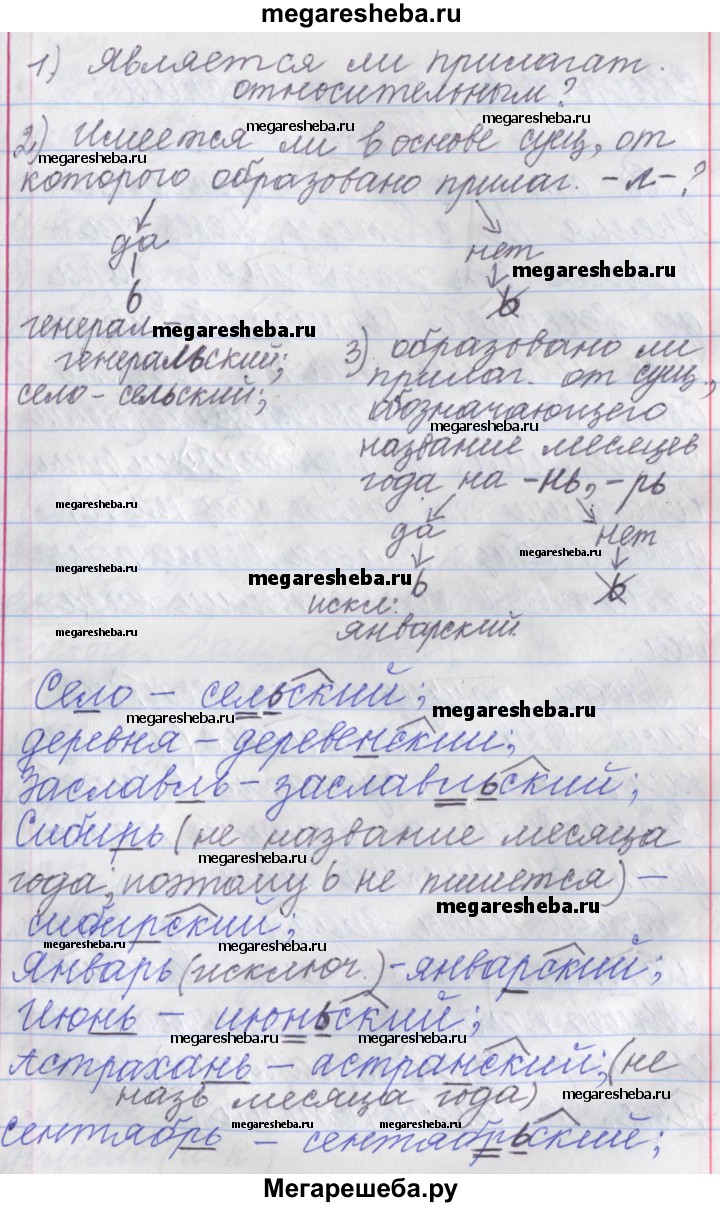 megaresheba.ru
1) Является ли прилагат.
относительным?
megaresheba.ru
megaresheba.ru
2) Имеется ли в основе сущ, от
megaresheba.ru
которого образовано прилаг. -л-?
да нет
megaresheba.ru
ь ь
генерал- megaresheba.ru
генеральский;
село - сельский;
3) образовано ли
прилаг. от сущ.,
обозначающего
megaresheba.ru
название месяцев
года на -нь, -рь
megaresheba.ru
да нет
megaresheba.ru
megaresheba.ru
megaresheba.ru
ь ь
искл:
январский.
megaresheba.ru
Село - сельский;
megaresheba.ru
megaresheba.ru
деревня - деревенский;
Заславль - заславльский;
Сибирь (не название месяца
megaresheba.ru
года, поэтому ь не пишется) -
megaresheba.ru
сибирский;
megaresheba.ru
megaresheba.ru
Январь (исключ.) - январский;
Июнь - июньский;
megaresheba.ru
megaresheba.ru
Астрахань - астранский; (не
назв месяца года)
megaresheba.ru
megaresheba.ru
megaresheba.ru
сентябрь - сентябрьский;
megaresheba.ru
Мегарешеба.ру